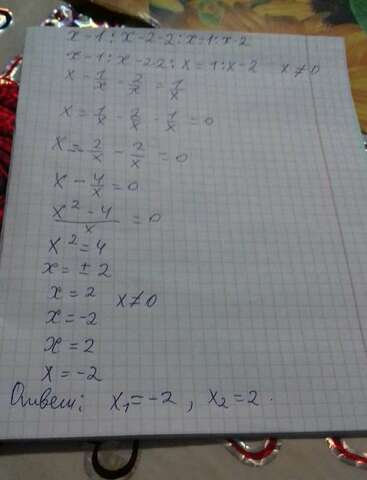 x-1:x-2-2:x=1:x-2
x-1:x-22:x=1:x-2 x≠0
x-1/x-2/x=1/x
x=1/x-2/x-1/x=0
x=-2/x-2/x=0
x-4/x=0
(x²-4)/x=0
x²=4
x=±2
x=2 x≠0
x=-2
x=2
x=-2
Ответ: x₁=-2, x₂=2.